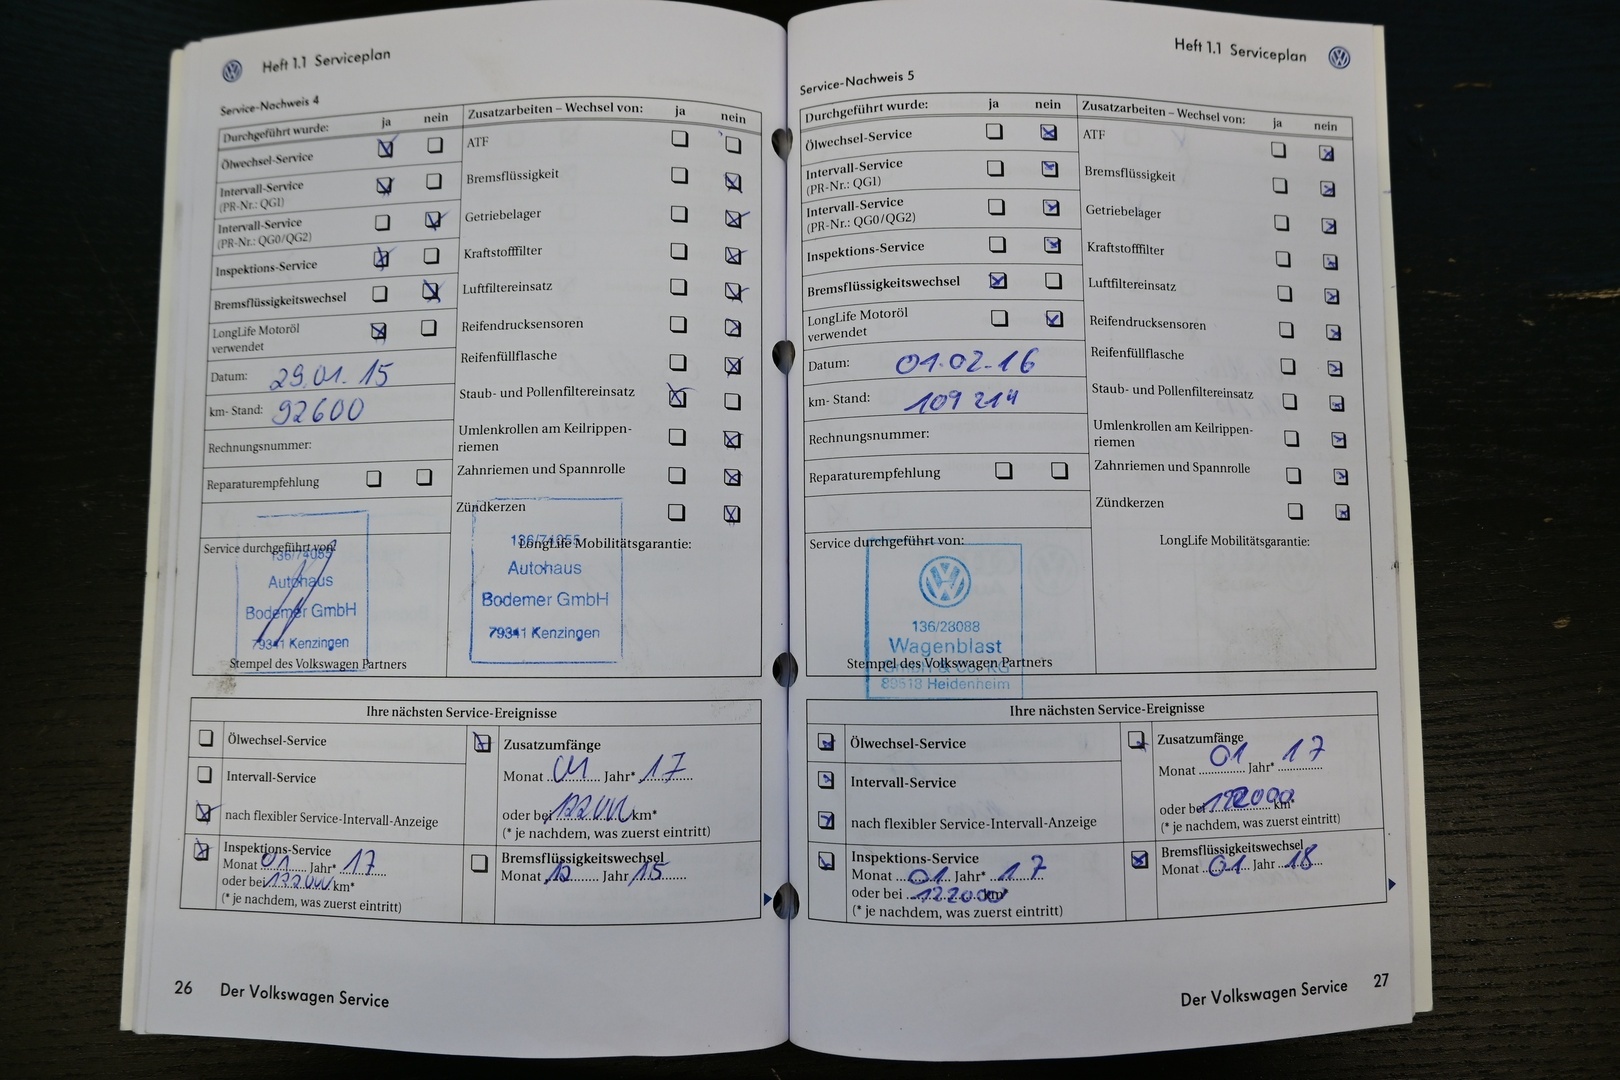 Heft 1.1 Serviceplan
Service-Nachweis 4
Durchgeführt wurde: ja nein
Ölwechsel-Service
Intervall-Service
(PR-Nr.: QG1)
Intervall-Service
(PR-Nr.: QG0/QG2)
Inspektions-Service
Bremsflüssigkeitswechsel
LongLife Motoröl
verwendet
Datum: 29.01.15
km- Stand: 92600
Rechnungsnummer:
Reparaturempfehlung
Service durchgeführt von:
136/74055
Autohaus
Bodemer GmbH
79341 Kenzingen
Stempel des Volkswagen Partners
Zusatzarbeiten – Wechsel von: ja nein
ATF
Bremsflüssigkeit
Getriebelager
Kraftstofffilter
Luftfiltereinsatz
Reifendrucksensoren
Reifenfüllflasche
Staub- und Pollenfiltereinsatz
Umlenkrollen am Keilrippen-
riemen
Zahnriemen und Spannrolle
Zündkerzen
LongLife Mobilitätsgarantie:
136/74055
Autohaus
Bodemer GmbH
79341 Kenzingen
Ihre nächsten Service-Ereignisse
Ölwechsel-Service
Intervall-Service
nach flexibler Service-Intervall-Anzeige
Inspektions-Service
Monat 01 Jahr* 17
oder bei 122000 km*
(* je nachdem, was zuerst eintritt)
Zusatzumfänge
Monat 01 Jahr* 17
oder bei 122000 km*
(* je nachdem, was zuerst eintritt)
Bremsflüssigkeitswechsel
Monat 12 Jahr 15
26 Der Volkswagen Service
Heft 1.1 Serviceplan
Service-Nachweis 5
Durchgeführt wurde: ja nein
Ölwechsel-Service
Intervall-Service
(PR-Nr.: QG1)
Intervall-Service
(PR-Nr.: QG0/QG2)
Inspektions-Service
Bremsflüssigkeitswechsel
LongLife Motoröl
verwendet
Datum: 01.02.16
km- Stand: 109 214
Rechnungsnummer:
Reparaturempfehlung
Service durchgeführt von:
136/28088
Wagenblast
Stempel des Volkswagen Partners
GmbH & Co. KG
89518 Heidenheim
Zusatzarbeiten – Wechsel von: ja nein
ATF
Bremsflüssigkeit
Getriebelager
Kraftstofffilter
Luftfiltereinsatz
Reifendrucksensoren
Reifenfüllflasche
Staub- und Pollenfiltereinsatz
Umlenkrollen am Keilrippen-
riemen
Zahnriemen und Spannrolle
Zündkerzen
LongLife Mobilitätsgarantie:
Ihre nächsten Service-Ereignisse
Ölwechsel-Service
Intervall-Service
nach flexibler Service-Intervall-Anzeige
Inspektions-Service
Monat 01 Jahr* 17
oder bei 122000 km*
(* je nachdem, was zuerst eintritt)
Zusatzumfänge
Monat 01 Jahr* 17
oder bei 122000 km*
(* je nachdem, was zuerst eintritt)
Bremsflüssigkeitswechsel
Monat 01 Jahr 18
Der Volkswagen Service 27